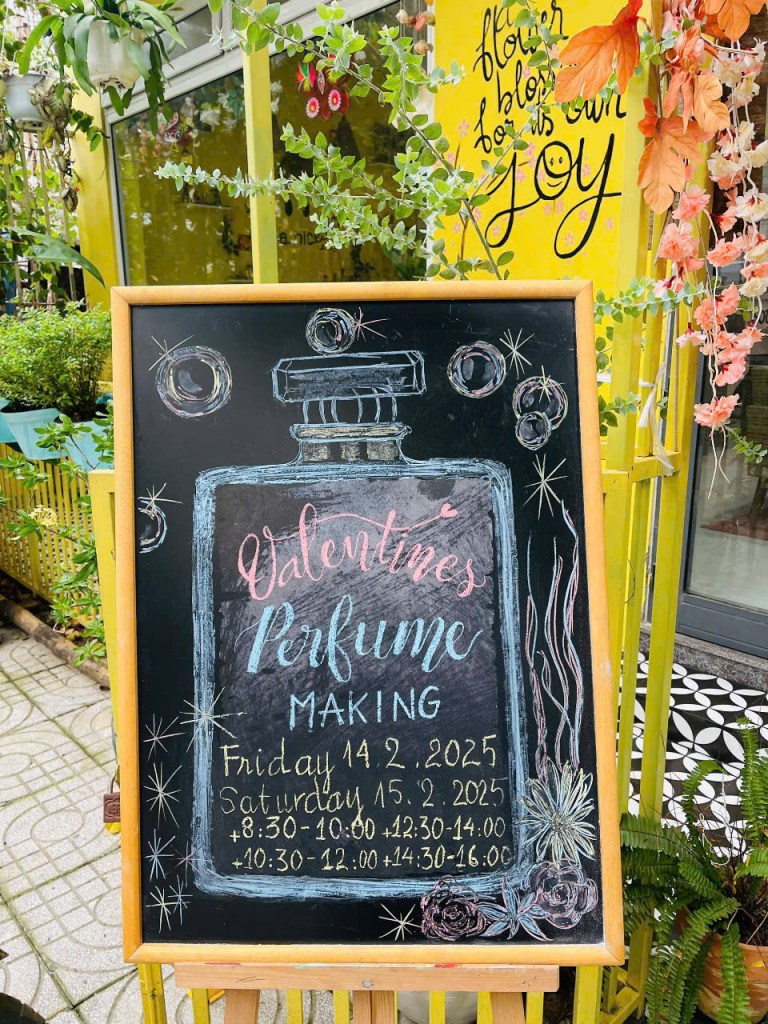 flower
for its own
JOY
Valentines
Perfume
MAKING
Friday 14.2.2025
Saturday 15.2.2025
+8:30-10:00 +12:30-14:00
+10:30-12:00 +14:30-16:00